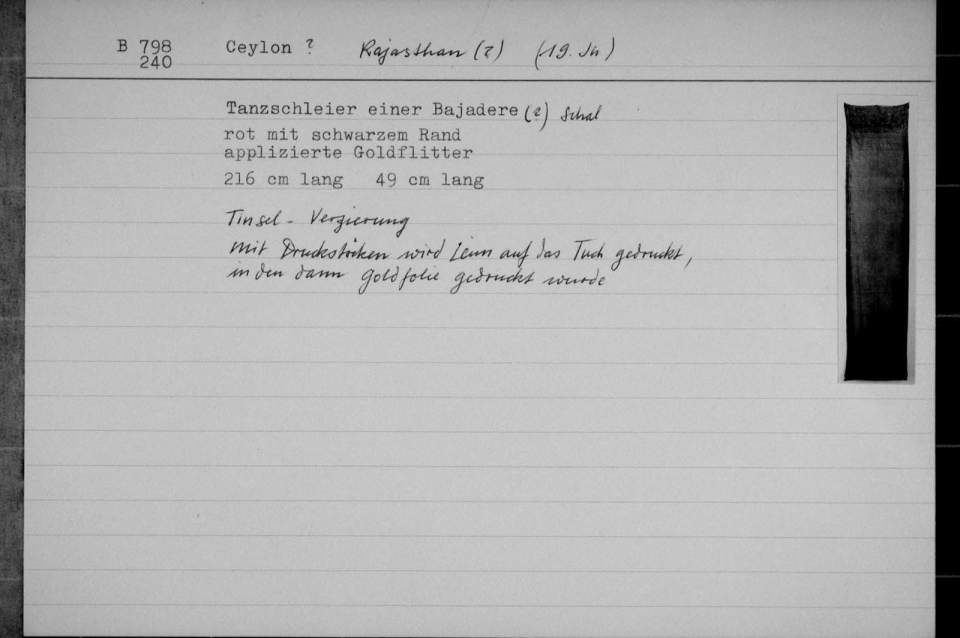 B 798 Ceylon ? Rajasthan (?) (19. Jh)
240
Tanzschleier einer Bajadere (?) Schal
rot mit schwarzem Rand
applizierte Goldflitter
216 cm lang 49 cm lang
Tinsel - Verzierung
Mit Druckstöcken wird Leim auf das Tuch gedruckt,
in den dann Goldfolie gedruckt wurde